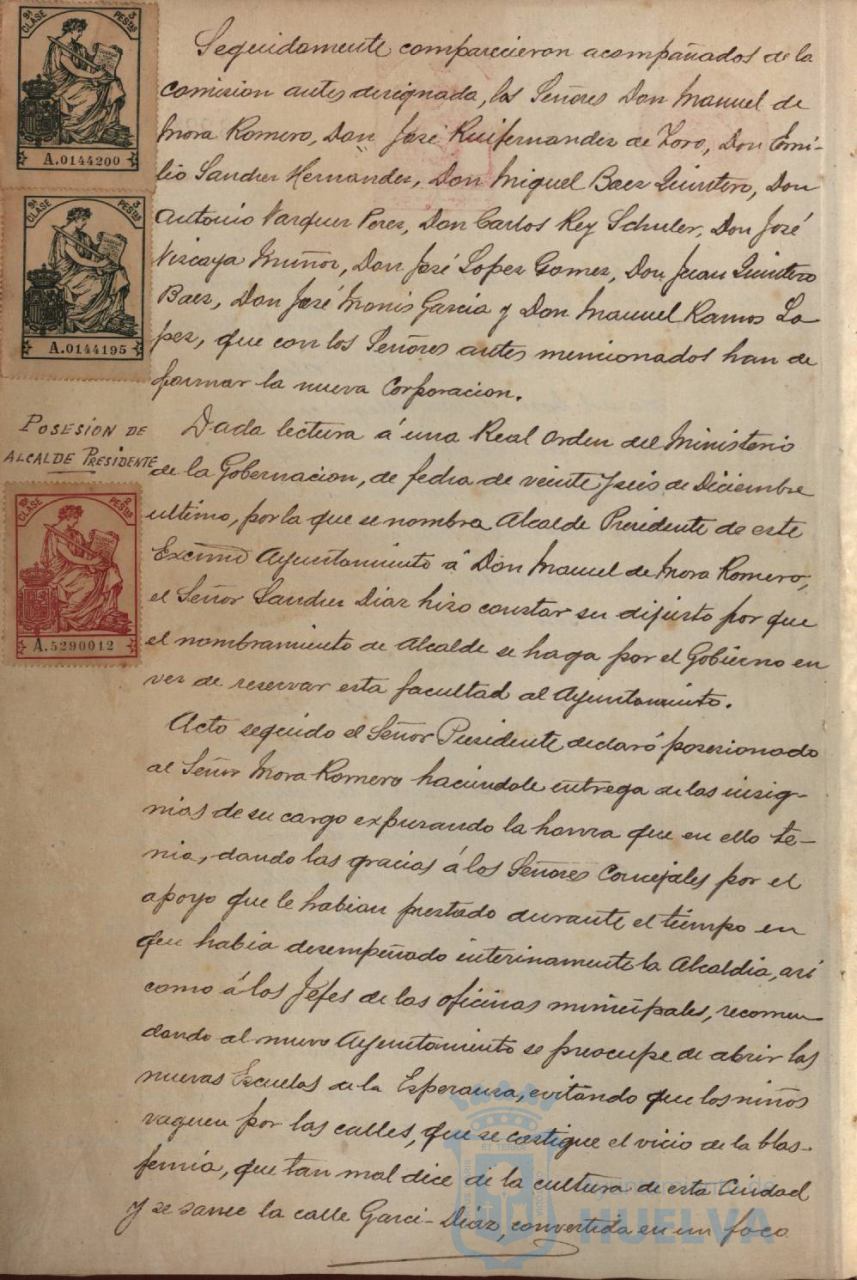 9ª CLASE 3 PESTAS
A.0144200
9ª CLASE 3 PESTAS
A.0144195
Seguidamente comparecieron acompañados de la
comision antes designada, los Señores Don Manuel de
Mora Romero, Don José Ruifernandez de Toro, Don Emi-
lio Sanches Hernandez, Don Miguel Baez Quintero, Don
Antonio Varques Peres, Don Carlos Rey Schuler, Don José
Viscaya Muñoz, Don José Lopez Gomez, Don Juan Quintero
Baez, Don José Monis Garcia y Don Manuel Ramos Lo
pez, que con los Señores antes mencionados han de
formar la nueva Corporacion.
POSESIÓN DE
ALCALDE PRESIDENTE
8ª CLASE 2 PESTAS
A.5290012
Dada lectura á una Real orden del Ministerio
de la Gobernacion, de fecha de veinte y seis de Diciembre
ultimo, por la que se nombra Alcalde Presidente de este
Excmo Ayuntamiento á Don Manuel de Mora Romero,
el Señor Sanches Diaz hizo constar su disgusto por que
el nombramiento de Alcalde se haga por el Gobierno en
ves de reservar esta facultad al Ayuntamiento.
Acto seguido el Señor Presidente declaró posesionado
al Señor Mora Romero haciendole entrega de las insig-
nias de su cargo expresando la honra que en ello te-
nia, dando las gracias á los Señores Concejales por el
apoyo que le habian prestado durante el tiempo en
que habia desempeñado interinamente la Alcaldia, asi
como á los Jefes de las oficinas municipales, recomen
dando al nuevo Ayuntamiento se preocupe de abrir las
nuevas Escuelas de la Esperanza, evitando que los niños
vaguen por las calles, que se castigue el vicio de la blas-
femia, que tan mal dice de la cultura de esta Ciudad
y se sanee la calle Garci-Diaz, convertida en un foco
Ayuntamiento de
HUELVA